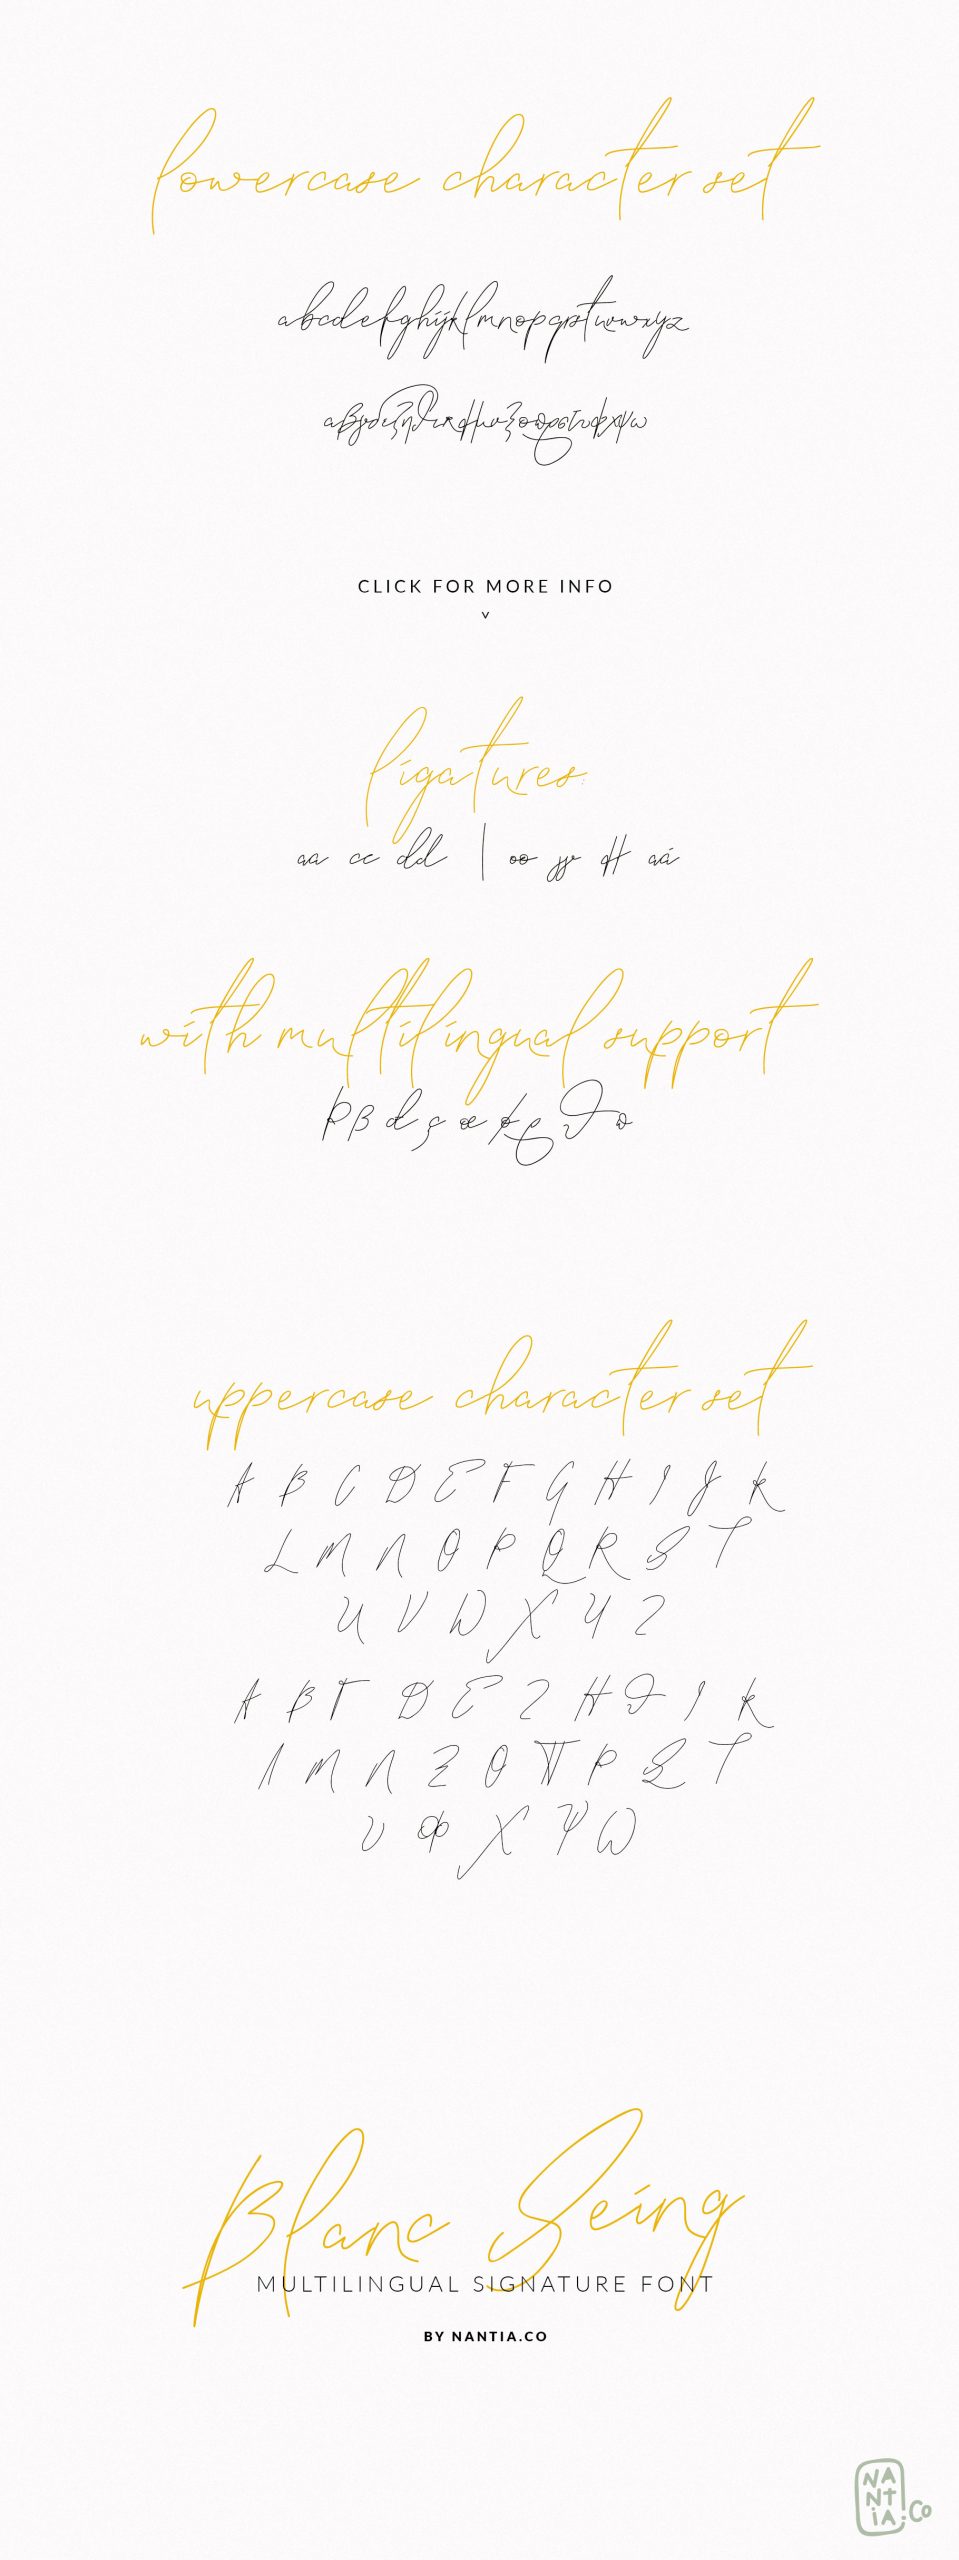 lowercase character set
abcdefghijklmnopqrstuvwxyz
αβγδεζηθικλμνξοπρστυφχψω
CLICK FOR MORE INFO
v
ligatures:
aa cc dd | oo
with multilingual support
uppercase character set
A B C D E F G H I J K
L M N O P Q R S T
U V W X Y Z
Α Β Γ Δ Ε Ζ Η Θ Ι Κ
Λ Μ Ν Ξ Ο Π Ρ Σ Τ
Υ Φ Χ Ψ Ω
Blanc Seing
MULTILINGUAL SIGNATURE FONT
BY NANTIA.CO
NANTiA.Co